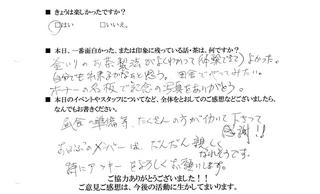 ■ きょうは楽しかったですか？
□はい　□いいえ。
■ 本日、一番面白かった、または印象に残っている話・茶は、何ですか？
釜いりのお茶製法がよくわかって（体験できて）よかった。
自分でも出来るかなあと思う。田舎でやってみたい。
オーナーの名板で記念の写真をありがとう。
■ 本日のイベントやスタッフについてなど、全体をとおしてのご感想などございましたら、
なんでもお書きください。
会の準備等、たくさんの方が動いて下さって
感謝!!
のメンバーは、だんだん親しく
なれそうです。
特にアッキーよろしくお願いします。
ご協力ありがとうございました！！
ご意見ご感想は、今後の活動に生かしてまいります。